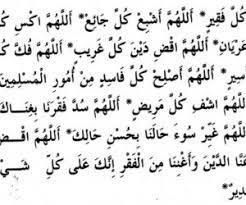 كُلَّ فَقِيرٍ * اَللَّهُمَّ أَشْبِعْ كُلَّ جَائِعٍ * اَللَّهُمَّ اكْسُ كُلَّ
عُرْيَانٍ * اَللَّهُمَّ اقْضِ دَيْنَ كُلِّ غَرِيبٍ * اَللَّهُمَّ فُكَّ كُلَّ
أَسِيرٍ * اَللَّهُمَّ أَصْلِحْ كُلَّ فَاسِدٍ مِنْ أُمُورِ الْمُسْلِمِينَ
اَللَّهُمَّ اشْفِ كُلَّ مَرِيضٍ * اَللَّهُمَّ سُدَّ فَقْرَنَا بِغِنَاكَ
اَللَّهُمَّ غَيِّرْ سُوءَ حَالِنَا بِحُسْنِ حَالِكَ * اَللَّهُمَّ اقْضِ
عَنَّا الدَّيْنَ وَأَغْنِنَا مِنَ الْفَقْرِ إِنَّكَ عَلَى كُلِّ شَيْءٍ
قَدِيرٌ *